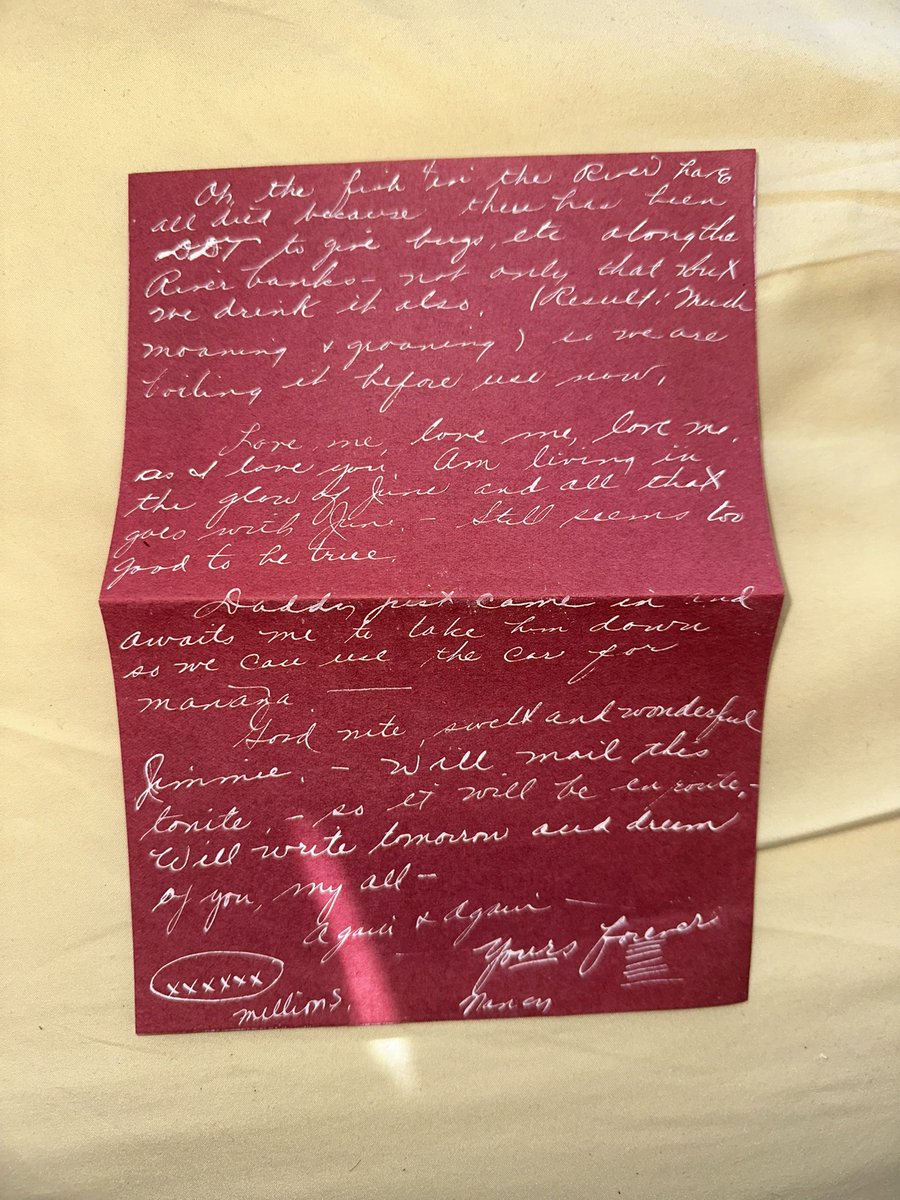 Oh, the fish in the River have
all died because there has been
DDT to give bugs, etc along the
River banks - not only that but
we drink it also. (Result: Much
moaning & groaning) so we are
boiling it before use now.
Love me, love me, love me,
as I love you. Am living in
the glow of June and all that
goes with June. - Still seems too
good to be true.
Daddy just came in and
awaits me to take him down
so we can use the car for
manaza
Good nite, swell and wonderful
Jimmie. - Will mail this
tonite, - so it will be en route, -
Will write tomorrow and dream
of you, my all -
Again & Again -
Yours forever
xxxxxx
millions.
Nancy